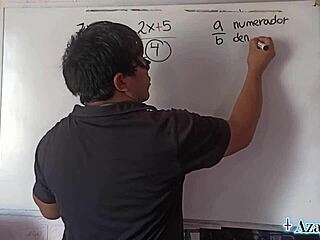 2x+5
4
a numerador
b den
+Aza